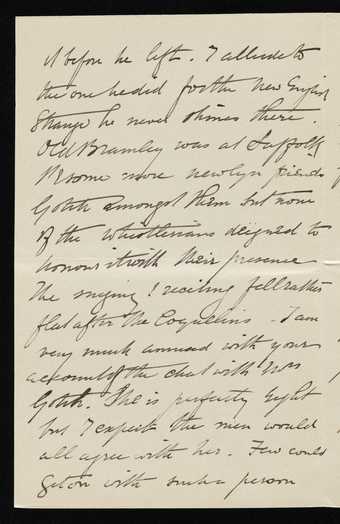 it before he left. I allude to
the one he did for the New English
Strange he never shines there.
Old Bramley was at Suffolk
St some more newlyn friends
Gotch amongst them but none
of the Whistlerians deigned to
honour it with their presence
The singing & reciting fell rather
flat after the Coquelins - I am
very much amused with your
account of the chat with Mrs
Gotch. She is perfectly right
but I expect the men would
all agree with her. Few could
get on with such a person